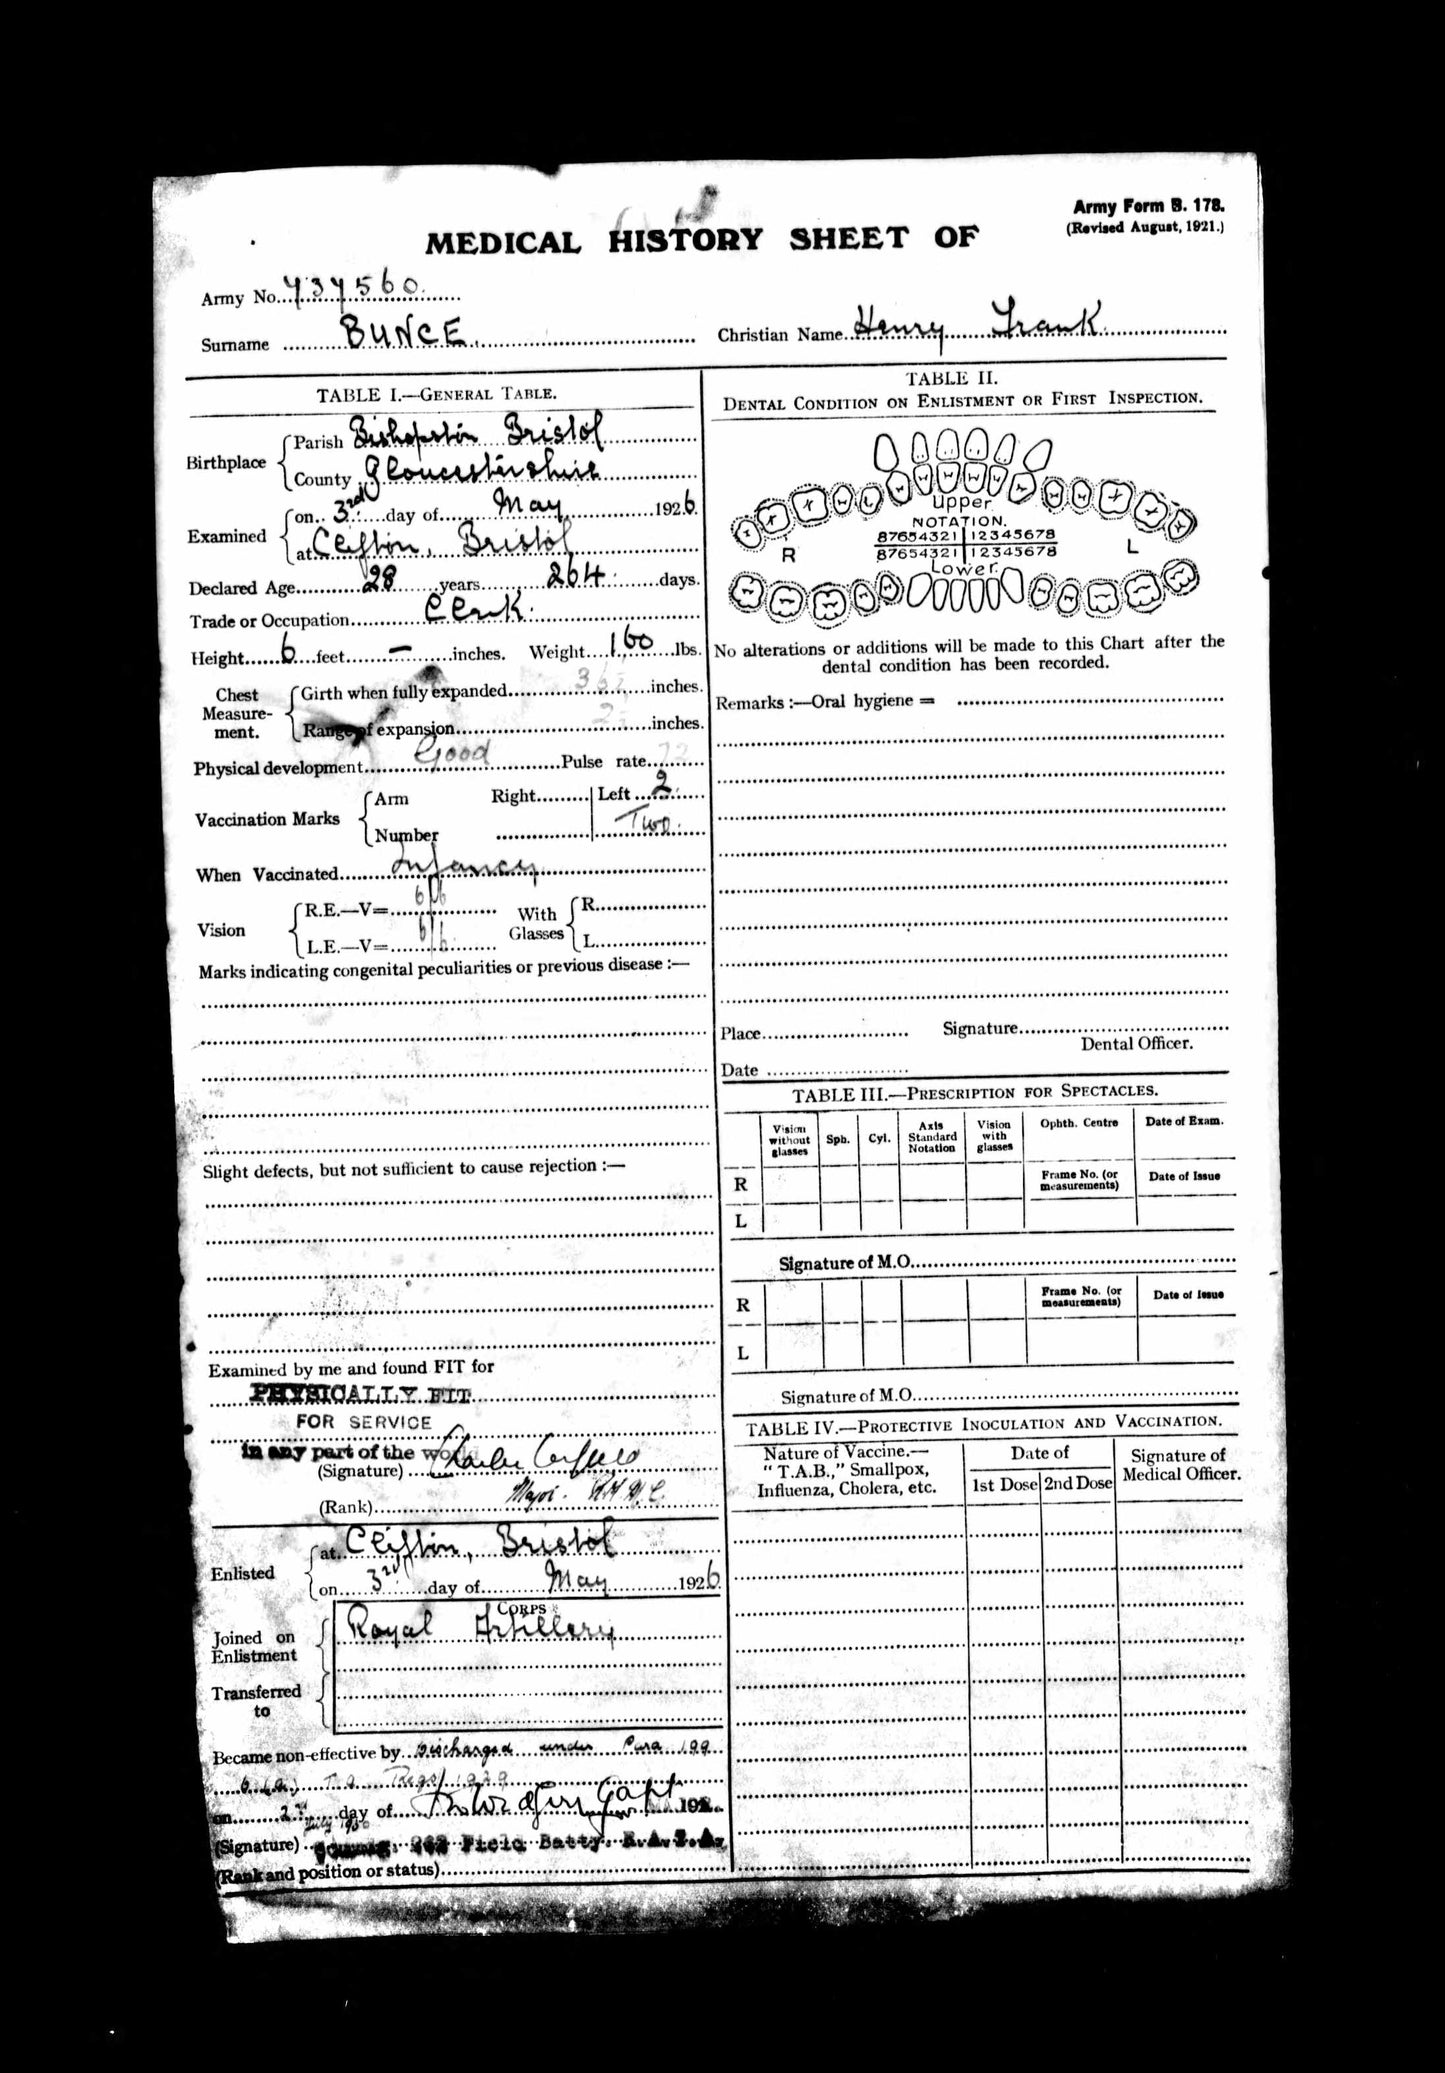 Army Form B. 178.
(Revised August, 1921.)
MEDICAL HISTORY SHEET OF
Army No. 737560.
Surname BUNCE.
Christian Name Henry Frank.
TABLE I.—GENERAL TABLE.
Birthplace
Parish Bishopston Bristol
County Gloucestershire
Examined
on 3rd day of May 1926.
at Clifton, Bristol
Declared Age 28 years 264 days.
Trade or Occupation Clerk.
Height 6 feet — inches. Weight 160 lbs.
Chest Measurement.
Girth when fully expanded inches.
Range of expansion inches.
Physical development Good Pulse rate 72
Vaccination Marks
Arm Right Left 2.
Number Two.
When Vaccinated Infancy
Vision
R.E.—V= 6/6
L.E.—V= 6/6.
With Glasses
R.
L.
Marks indicating congenital peculiarities or previous disease :—
Slight defects, but not sufficient to cause rejection :—
Examined by me and found FIT for
PHYSICALLY FIT
FOR SERVICE
in any part of the world
(Signature) Charles
(Rank) Major.
Enlisted
at Clifton, Bristol
on 3rd day of May 1926.
CORPS
Joined on Enlistment
Royal Artillery
Transferred to
Became non-effective by Discharged under Para 199
T.A. Regs/1929
on day of Capt 192
July
(Signature) Field Batty. R.A.T.A.
(Rank and position or status)
TABLE II.
DENTAL CONDITION ON ENLISTMENT OR FIRST INSPECTION.
Upper.
NOTATION.
87654321 12345678
R L
87654321 12345678
Lower.
No alterations or additions will be made to this Chart after the
dental condition has been recorded.
Remarks :—Oral hygiene =
Place Signature
Dental Officer.
Date
TABLE III.—PRESCRIPTION FOR SPECTACLES.
Vision without glasses
Sph.
Cyl.
Axis Standard Notation
Vision with glasses
Ophth. Centre
Date of Exam.
R
Frame No. (or measurements)
Date of Issue
L
Signature of M.O.
R
Frame No. (or measurements)
Date of Issue
L
Signature of M.O.
TABLE IV.—PROTECTIVE INOCULATION AND VACCINATION.
Nature of Vaccine.—
" T.A.B.," Smallpox,
Influenza, Cholera, etc.
Date of
1st Dose 2nd Dose
Signature of
Medical Officer.